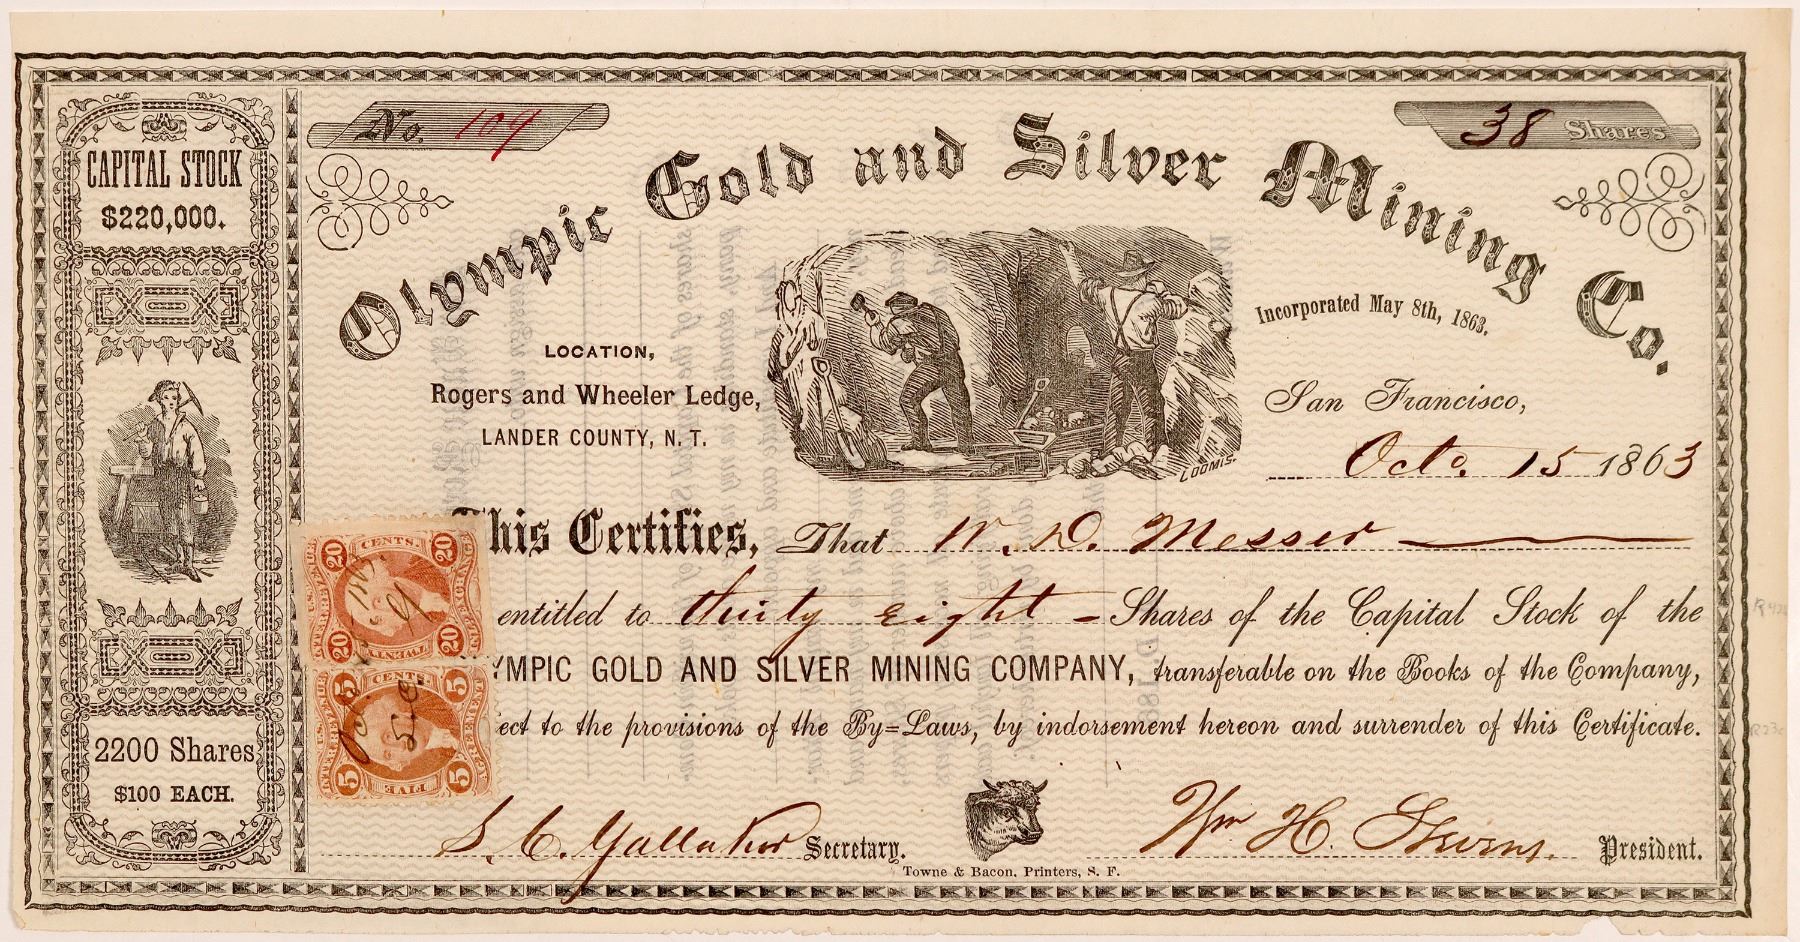 No. 109
38 Shares
CAPITAL STOCK
$220,000.
Olympic Gold and Silver Mining Co.
Incorporated May 8th, 1863.
LOCATION,
Rogers and Wheeler Ledge,
LANDER COUNTY, N. T.
LOOMIS.
San Francisco,
Octo. 15 1863
This Certifies, That W. D. Messer
entitled to thirty eight - Shares of the Capital Stock of the
YMPIC GOLD AND SILVER MINING COMPANY, transferable on the Books of the Company,
ect to the provisions of the By=Laws, by indorsement hereon and surrender of this Certificate.
20 CENTS. 20
U.S. INTER. REV. EXCHANGE
20 TWENTY 20
5 CENTS 5
U.S. INTER. REV.
5 FIVE 5
2200 Shares
$100 EACH.
Secretary.
Wm H. Stevens. President.
Towne & Bacon, Printers, S. F.